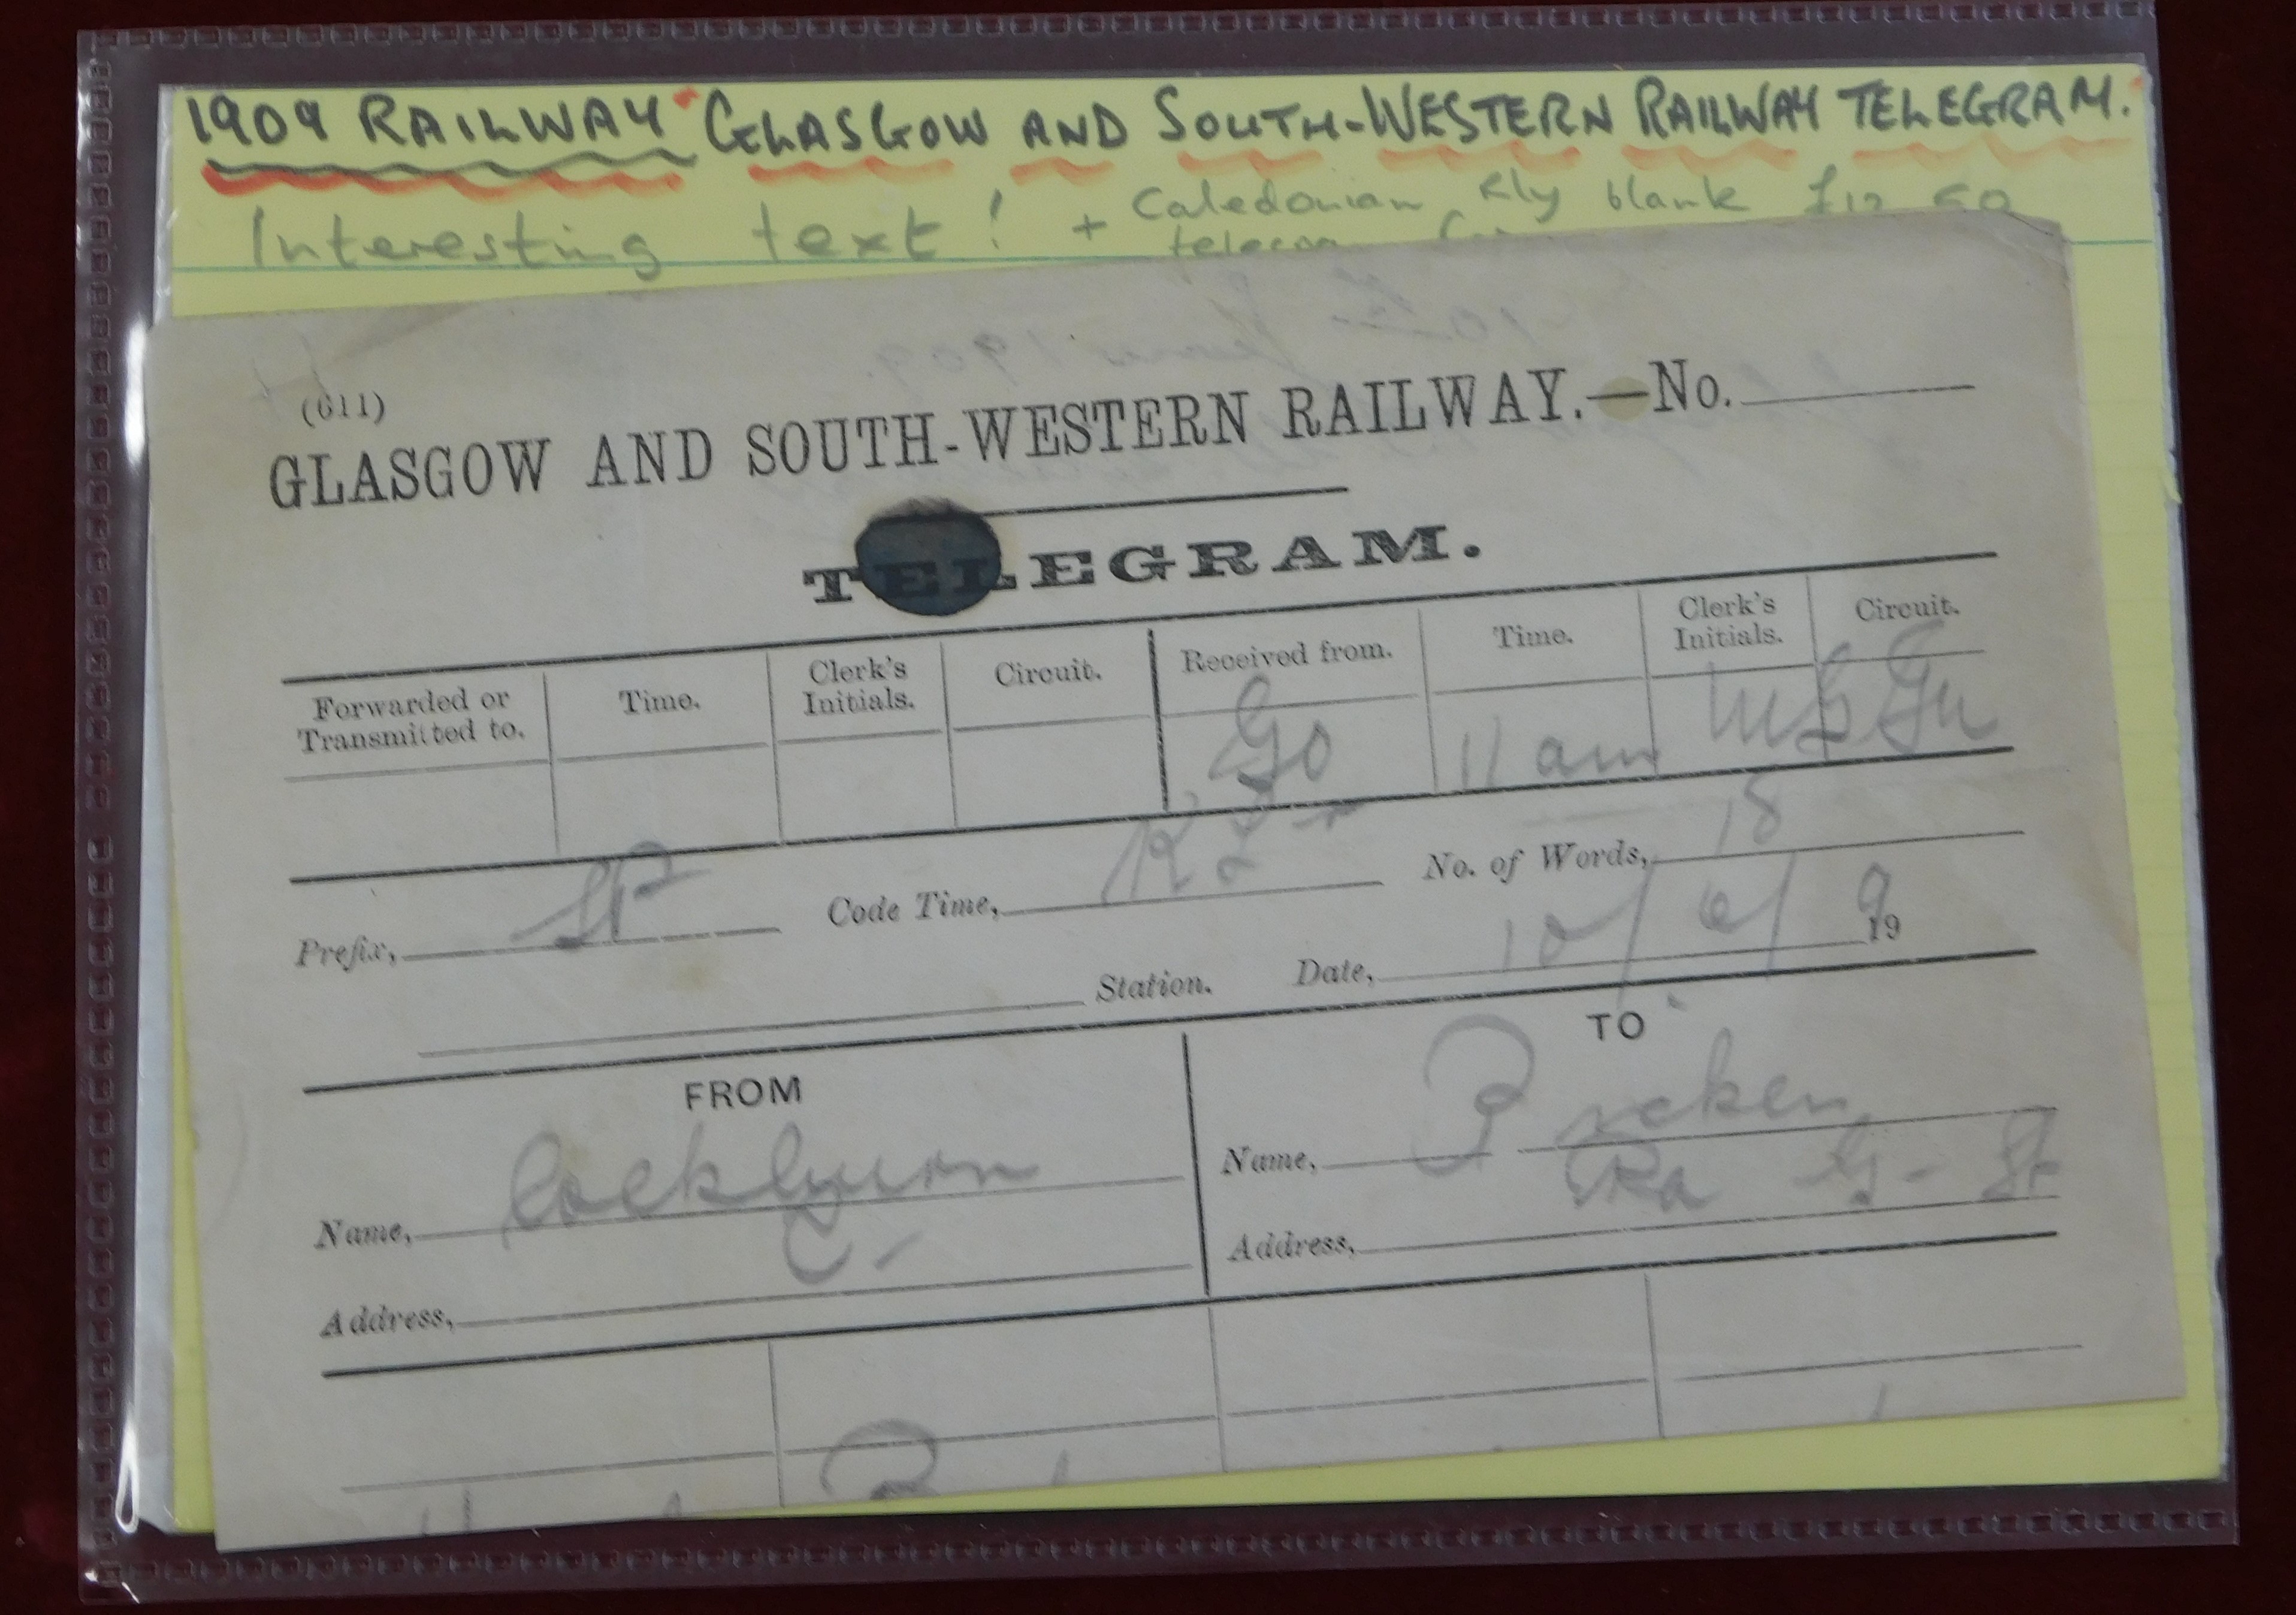 1909 RAILWAY "GLASGOW AND SOUTH-WESTERN RAILWAY TELEGRAM."
Interesting text! + Caledonian Rly blank £12.50
(611)
GLASGOW AND SOUTH-WESTERN RAILWAY.—No.
TELEGRAM.
Forwarded or Transmitted to. Time. Clerk's Initials. Circuit. Received from. Time. Clerk's Initials. Circuit.
Go 11 am
Prefix, SP Code Time, No. of Words, 18
Station. Date, 10/6/ 19 9
FROM TO
Name, Cockburn Name,
Address, C- Address,